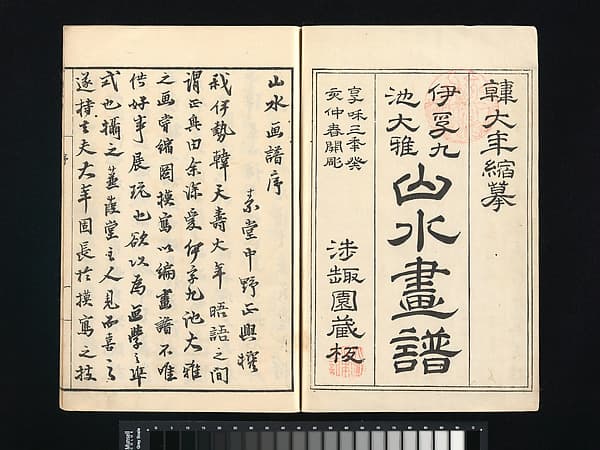 韓大年縮摹
伊孚九
池大雅
山水畫譜
享咊三季癸
亥仲春開彫
涉趣園藏板
山水画譜序
素堂中野正興撰
我伊勢韓天壽大年晤語之間
謂正興曰余深愛伊孚九池大雅
之画嘗縮圖摸寫以編畫譜不唯
供好事展玩也欲以為画學之準
式也攝之蒹葭堂主人見而喜之
遂持去夫大年固長於摸寫之技
序